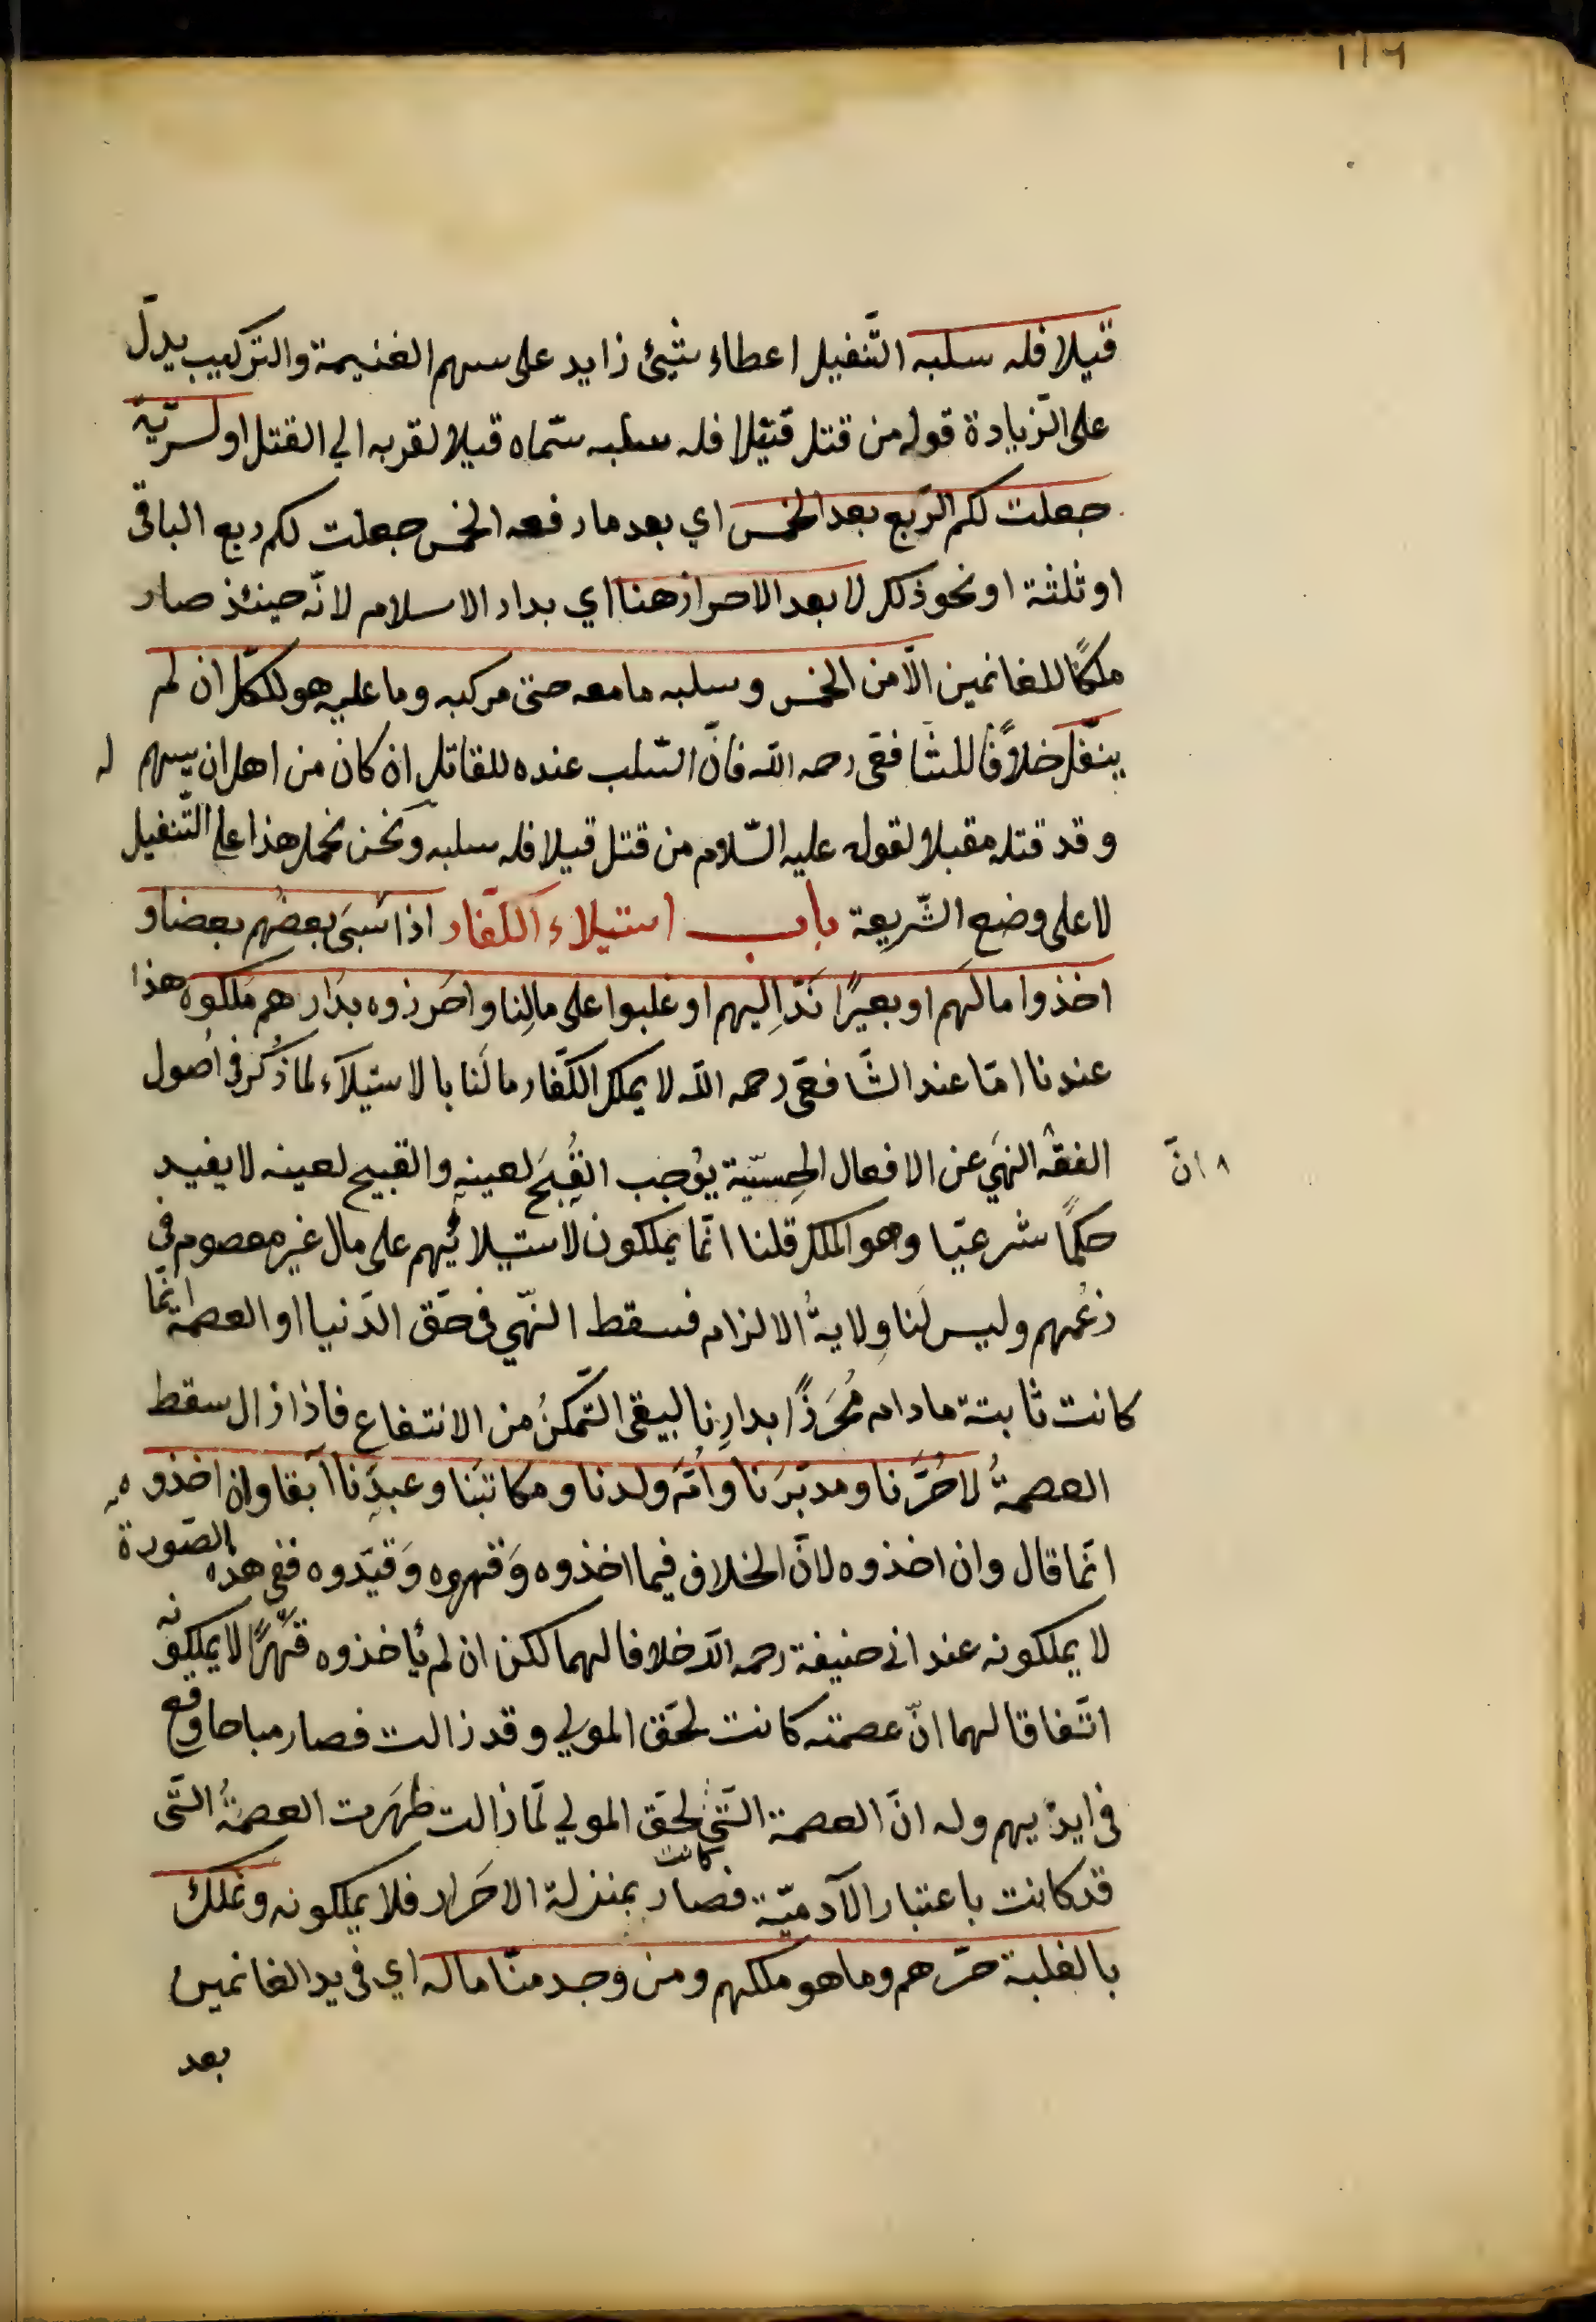 ١١٦
قتيلا فله سلبه التّنفيل اعطاء شيئ زايد على سهم الغنيمة والتركيب يدلّ
على الزّيادة قوله من قتل قتيلا فله سلبه سمّاه قتيلا لقربه الي القتل او لسريّة
جعلت لكم الرّبع بعد الخمس اي بعد ما رفعه الخمس جعلت لكم ربع الباقى
او ثلثة او نحو ذلك لا بعد الاحراز هنا اي بدار الاسلام لانّه حينئذ صار
ملكًا للغانمين الّا من الخمس وسلبه ما معه حتى مركبه وما عليه هو للكلّ ان لم
ينفّل خلافًا للشّافعىّ رحمه الله فانّ السّلب عنده للقاتل ان كان من اهل ان يسهم له
وقد قتله مقبلا لقوله عليه السّلام من قتل قتيلا فله سلبه ونحن نحمل هذا على التّنفيل
لا على وضع الشّريعة باب استيلاء الكفّار اذا سَبىَ بعضُهم بعضا و
اخذوا مالَهم او بعيرًا نَدّ اِليهم او غلبوا على مالِنا واحرزوه بدَارهم مَلكوه هذا
عندنا امّا عند الشّافعىّ رحمه الله لا يملك الكفّار مالَنا بالاستيلآء لما ذُكر فى اُصول
الفقه النهَي عن الافعال الحِسيّة يوُجب القُبحَ لعينهِ والقبيح لعينه لا يفيد
٨ انّ
حكمًا شرعيّا وهو الملك قلنا انّما يملكون لاستيلائهم على مال غير معصوم فى
زعُمهم وليس لَنا وِلايةُ الالزام فسقط النّهي فى حَق الدّنيا او العصمة انّما
كانت ثابتة مادام مُحرَزًا بدارِنا ليبقى التّمكّنُ من الانتفاع فاذا زال سقط
العصمةُ لا حُرَّنا ومدبّرَنا واُمَّ ولدنا ومكاتبَنا وعبدَنا آبقا وان اخذوه
انّما قال وان اخذوه لانّ الخلاف فيما اخذوه وَقهروه وَقيّدوه ففى هذه الصّورة
لا يملكونه عند ابى حنيفة رحمه الله خلافا لهما لكن ان لم يأخذوه قهرًا لا يملكونه
اتّفاقا لهما انّ عصمته كانت لحَق المولي وقد زالت فصار مباحا وقع
فى ايديهم وله انّ العصمة الّتى كانت لحَق المولي لمّا زالت ظهَرت العصمةُ الّتى
قد كانت باعتبار الآدميّة فصار بمنزلة الاحَرار فلا يملكونه ونملك
بالغلبة حرّهم وما هو ملكهم ومن وجد منّا ماله اي فى يد الغانمين
بعد